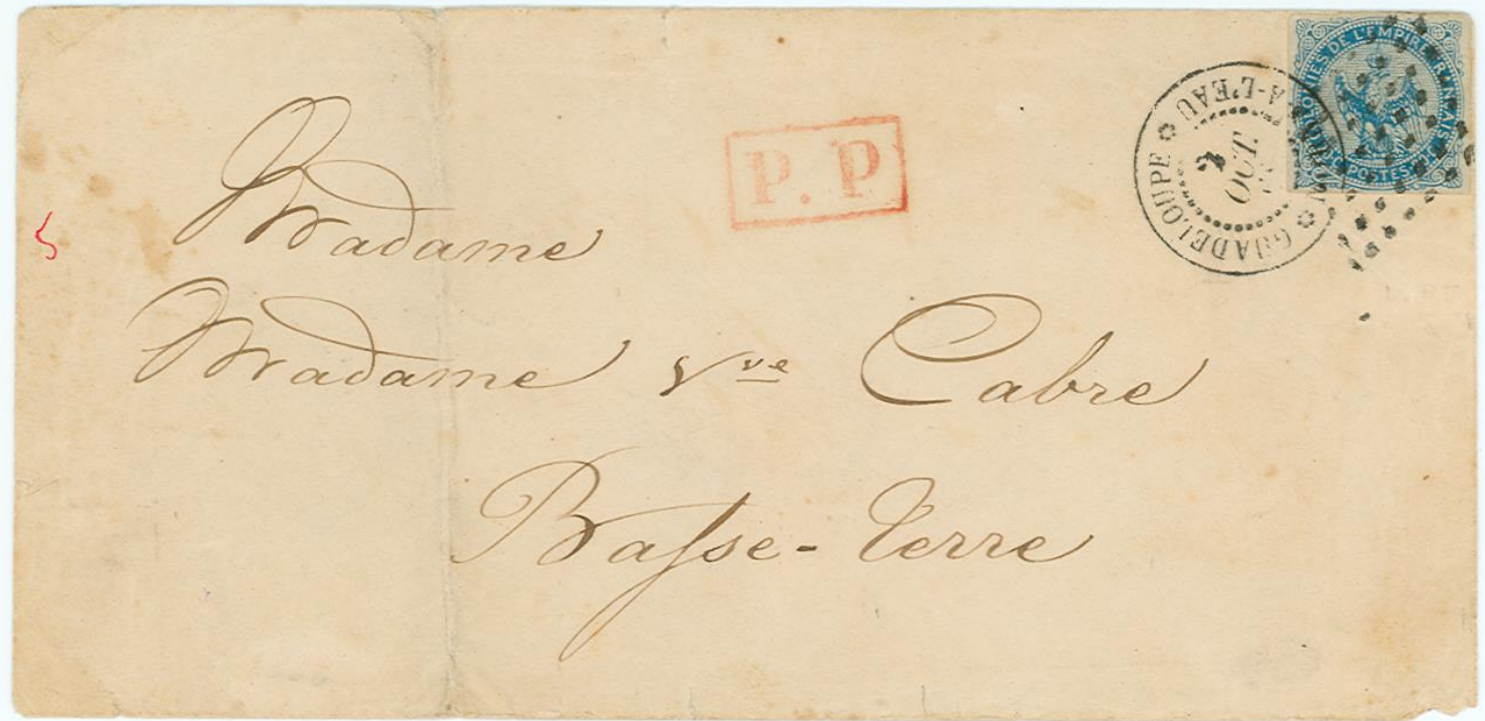 COLONIES DE L'EMPIRE FRANÇAIS
POSTES
GUADELOUPE
A-L'EAU
2
OCT.
P. P
Madame
Madame Vve Cabre
Baſse-Terre